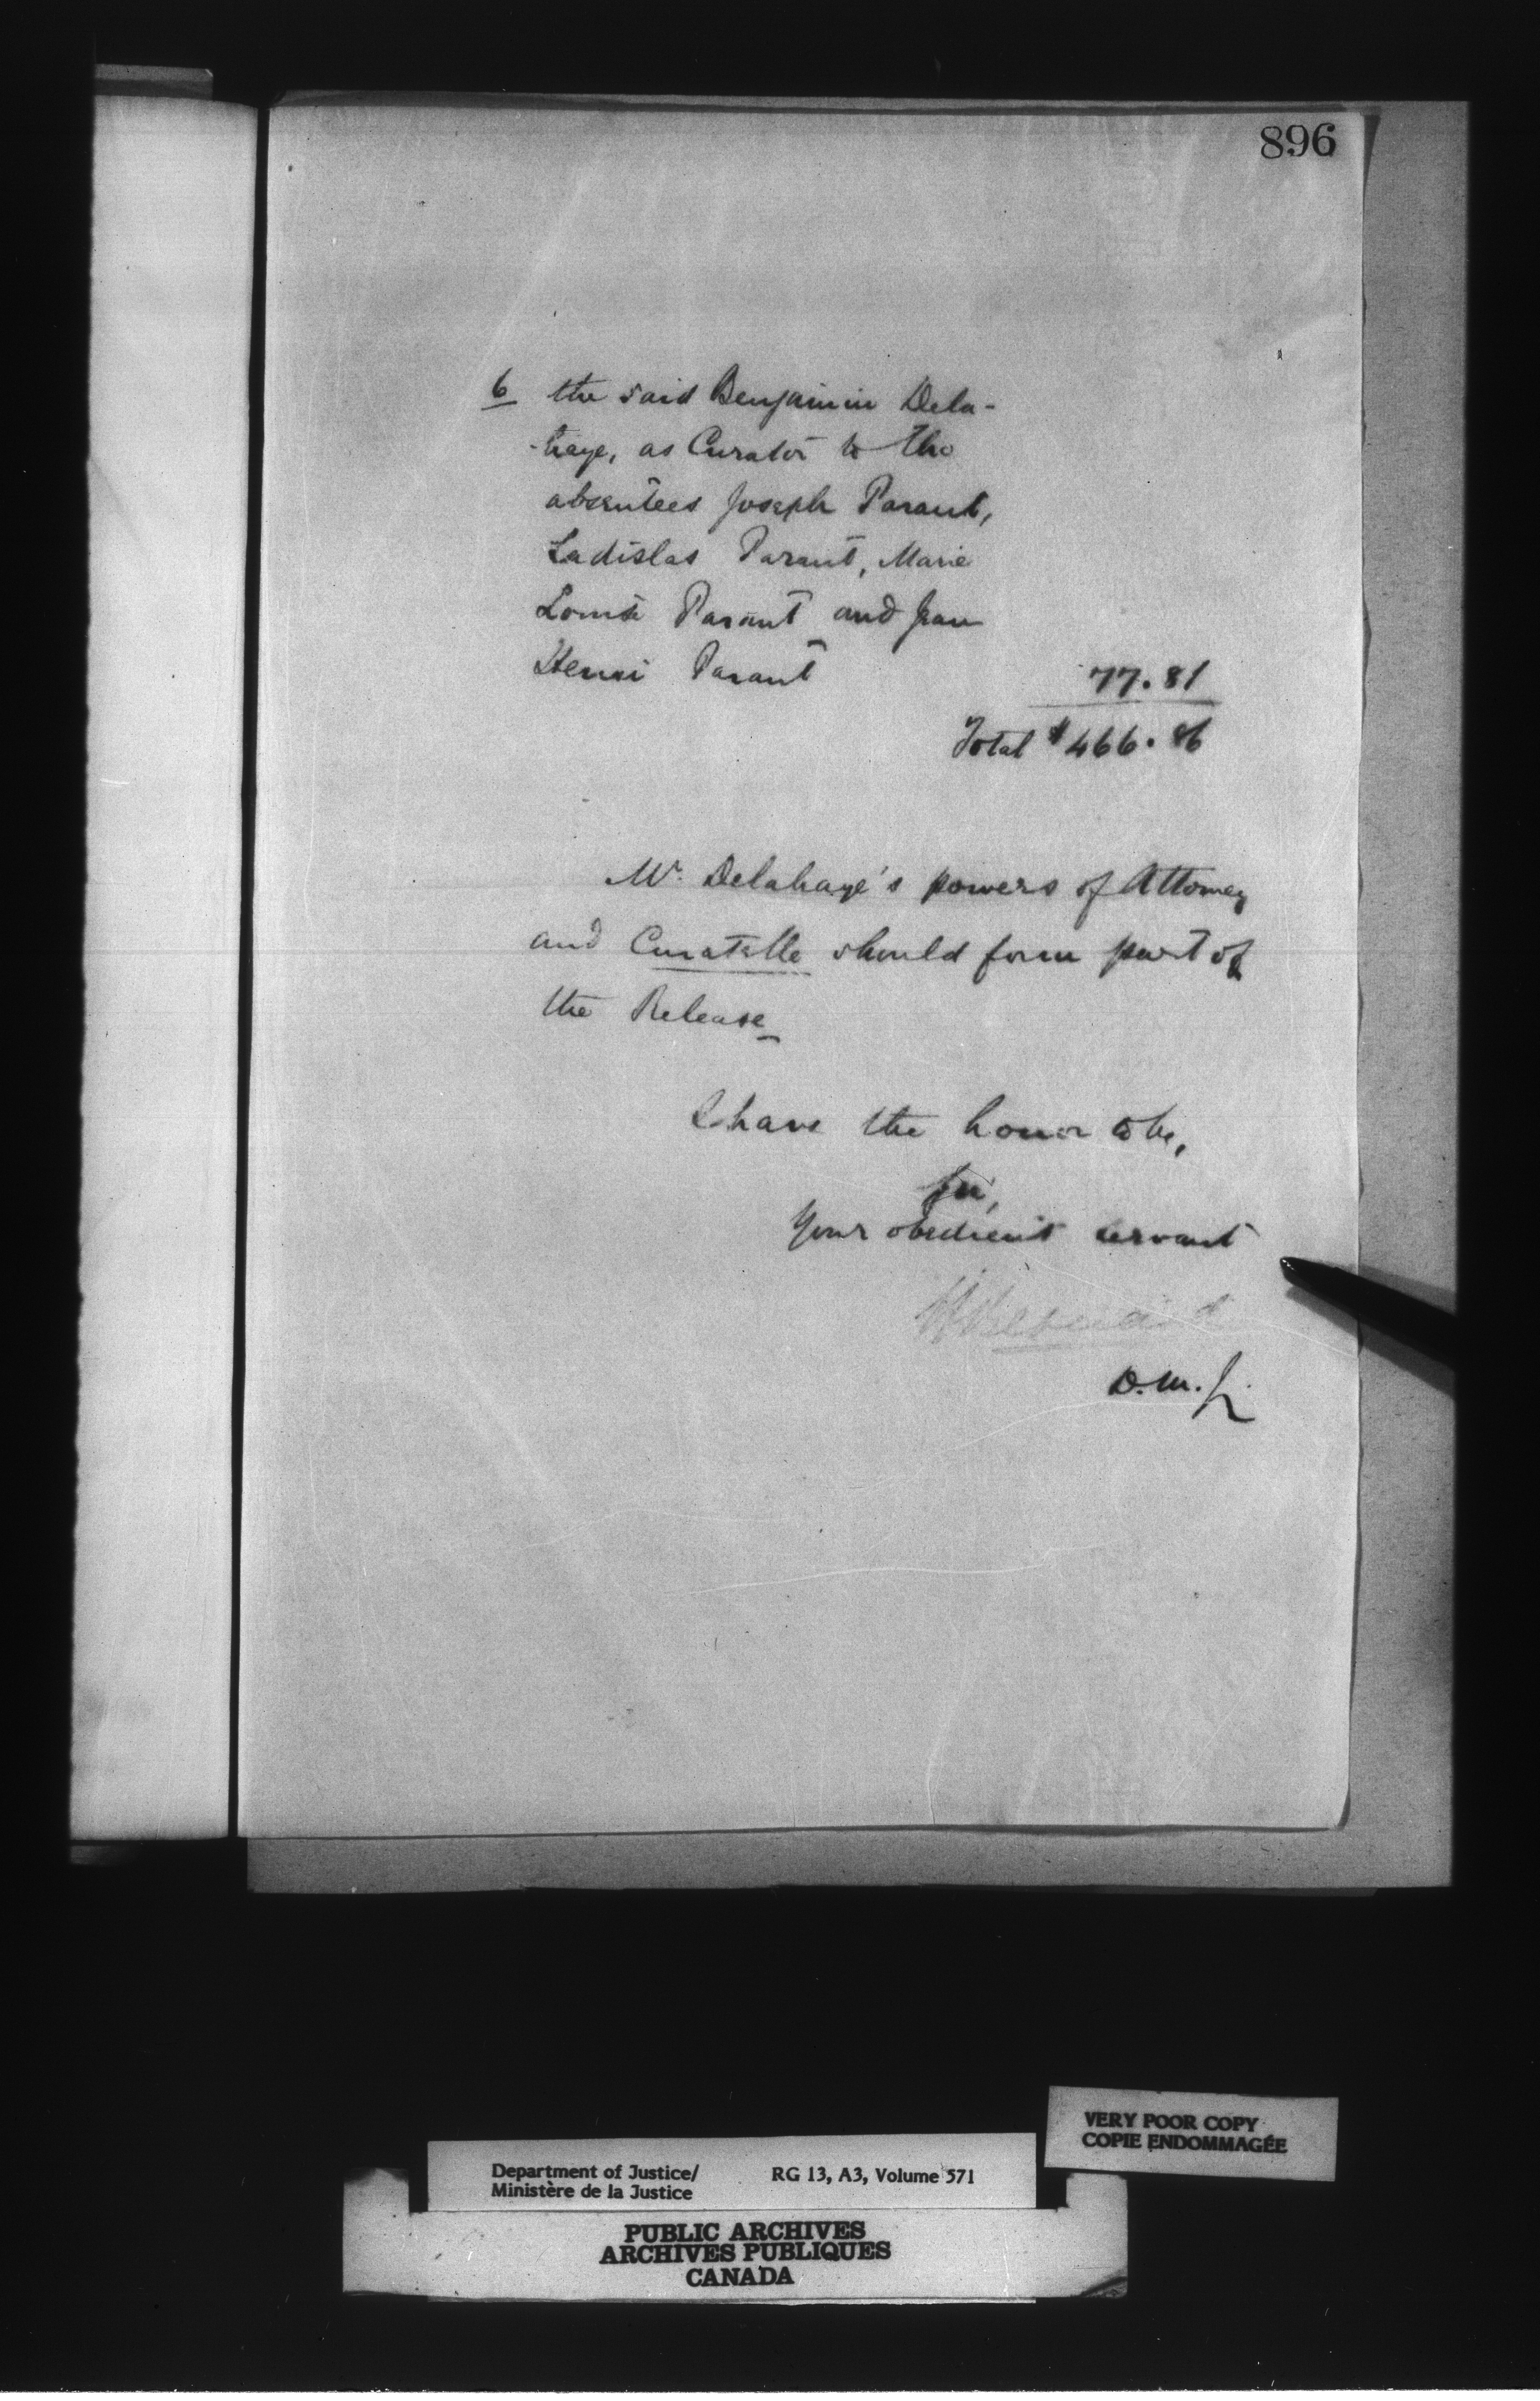 896
6 the said Benjamin Dela-
-haye, as Curator to the
absentees Joseph Parant,
Ladislas Parant, Marie
Louise Parant and Jean
Henri Parant
77.81
Total $466.86
Mr. Delahaye's powers of Attorney
and Curatelle should form part of
the Release
I have the honor to be,
Sir,
Your obedient servant
D.M.J.
VERY POOR COPY
COPIE ENDOMMAGÉE
Department of Justice/ RG 13, A3, Volume 571
Ministère de la Justice
PUBLIC ARCHIVES
ARCHIVES PUBLIQUES
CANADA